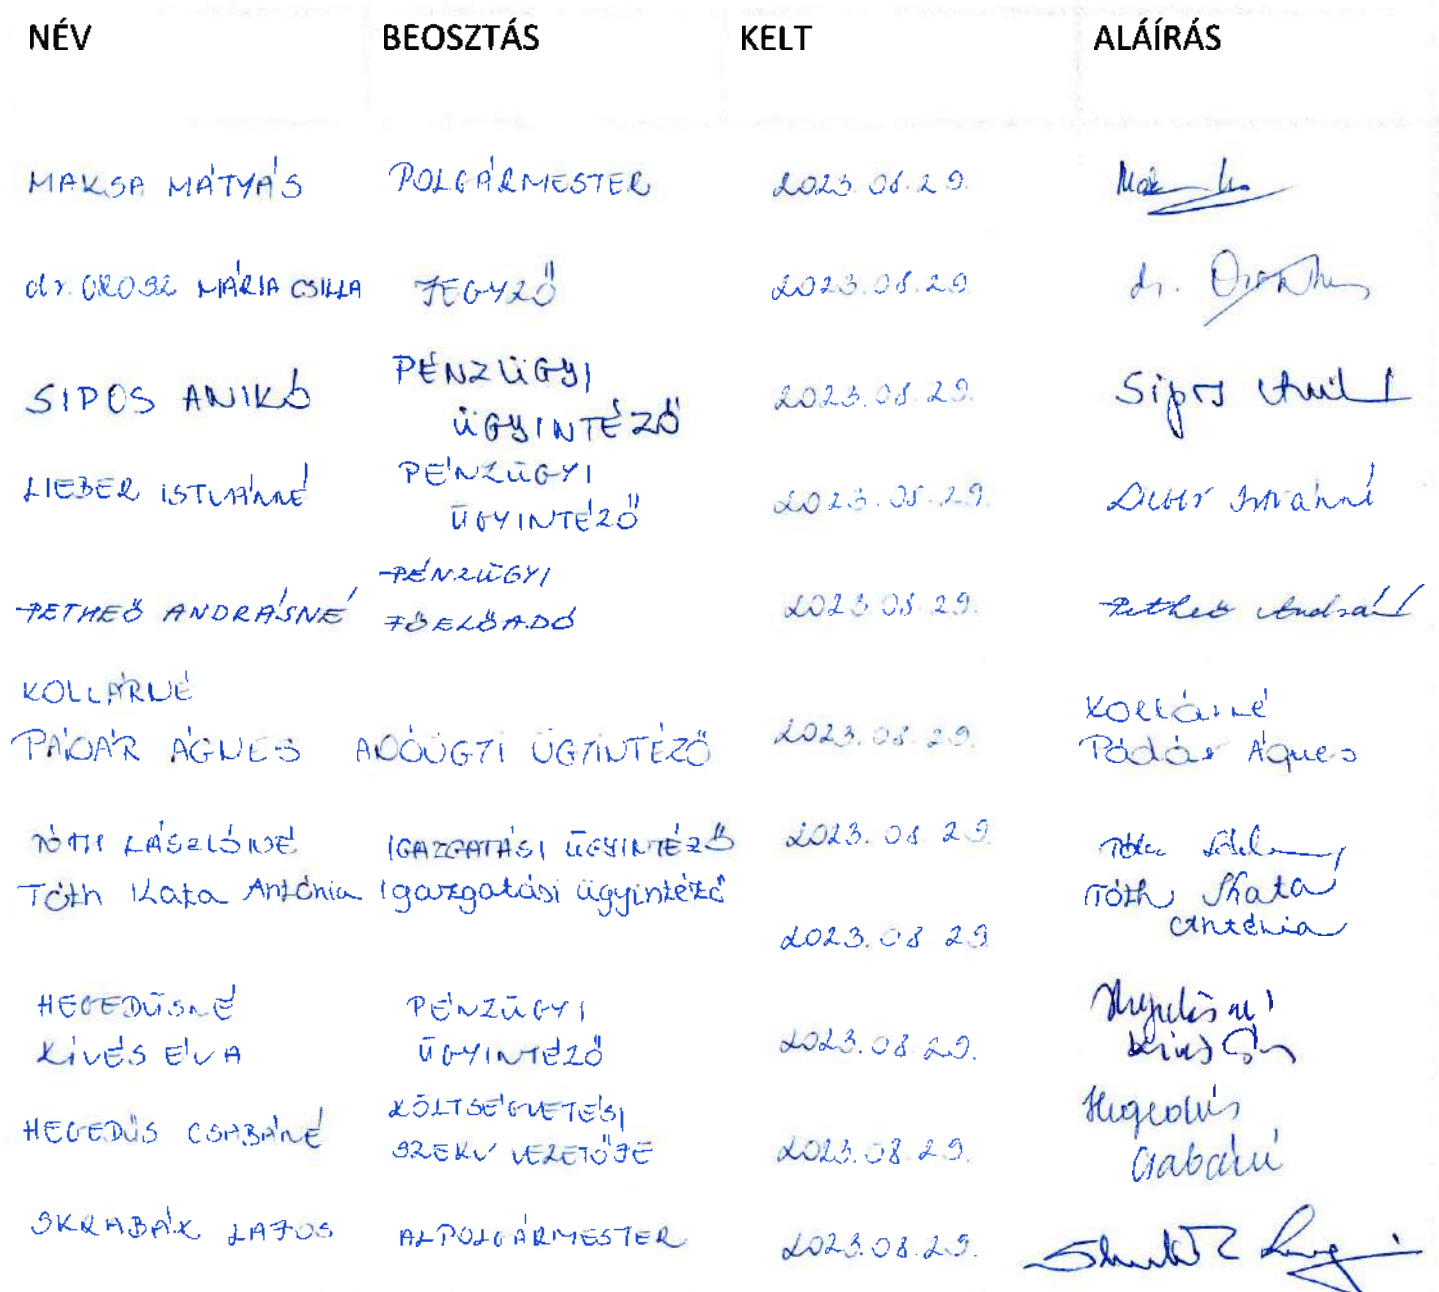 NÉV BEOSZTÁS KELT ALÁÍRÁS
MAKSA MÁTYÁS POLGÁRMESTER 2023.08.29.
dr. OROSZ MÁRIA CSILLA JEGYZŐ 2023.08.29. dr.
SIPOS ANIKÓ PÉNZÜGYI ÜGYINTÉZŐ 2023.08.29. Sipos Anikó
LIEBER ISTVÁNNÉ PÉNZÜGYI ÜGYINTÉZŐ 2023.08.29. Lieber Istvánné
PETHEŐ ANDRÁSNÉ PÉNZÜGYI FŐELŐADÓ 2023.08.29. Petheő Andrásné
KOLLÁRNÉ Kollárné
PÁDÁR ÁGNES ADÓÜGYI ÜGYINTÉZŐ 2023.08.29. Pádár Ágnes
TÓTH LÁSZLÓNÉ IGAZGATÁSI ÜGYINTÉZŐ 2023.08.29.
Tóth Kata Antónia Igazgatási ügyintéző 2023.08.29. Tóth Kata Antónia
HEGEDŰSNÉ PÉNZÜGYI Hegedűsné
KÍVÉS ÉVA ÜGYINTÉZŐ 2023.08.29.
HEGEDŰS CSABÁNÉ KÖLTSÉGVETÉSI SZERV VEZETŐJE 2023.08.29. Hegedűs Csabáné
SKRABÁK LAJOS ALPOLGÁRMESTER 2023.08.29.